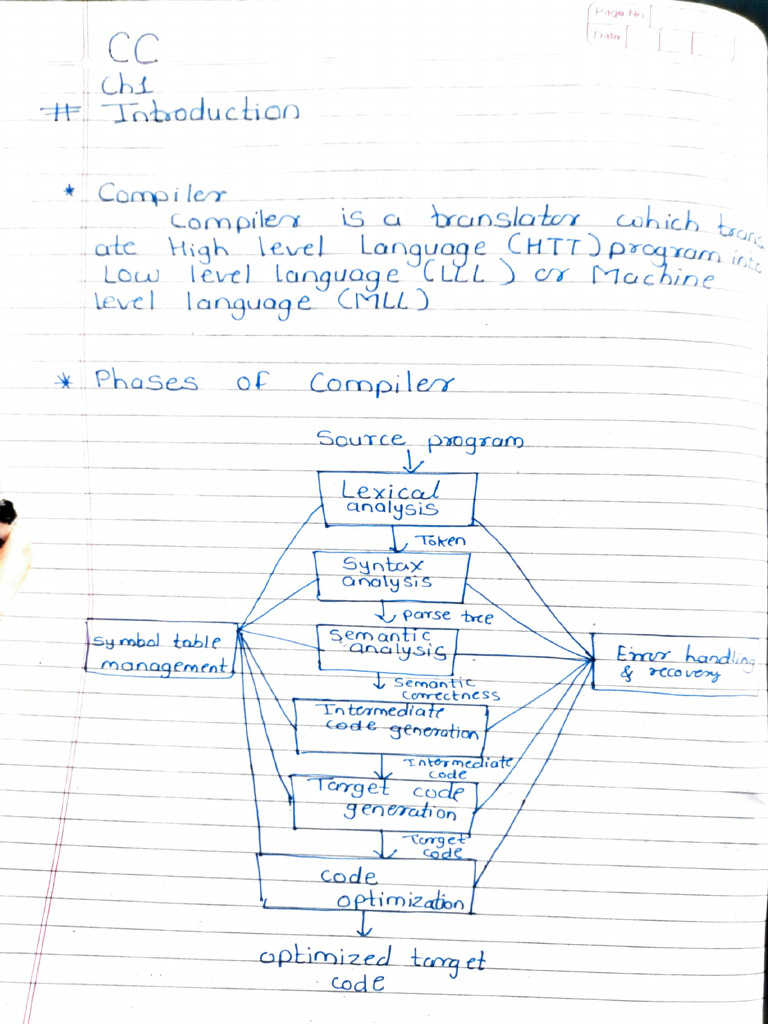 Page No.
Date
CC
Ch1
# Introduction
* Compiler
Compiler is a translator which trans
ate High level Language (HTT) program into
Low level language (LLL) or Machine
level language (MLL)
* Phases of Compiler
Source program
Lexical
analysis
Token
Syntax
analysis
parse tree
Symbol table
management
Semantic
analysis
Error handling
& recovery
Semantic
correctness
Intermediate
code generation
Intermediate
code
Target code
generation
Target
code
code
optimization
optimized target
code